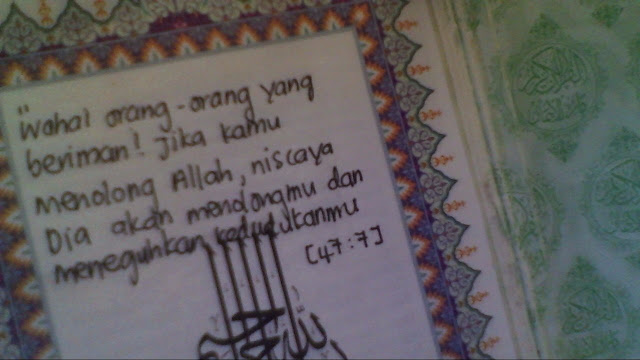 "Wahai orang-orang yang
beriman! Jika kamu
menolong Allah, niscaya
Dia akan menolongmu dan
meneguhkan kedudukanmu
[47:7]